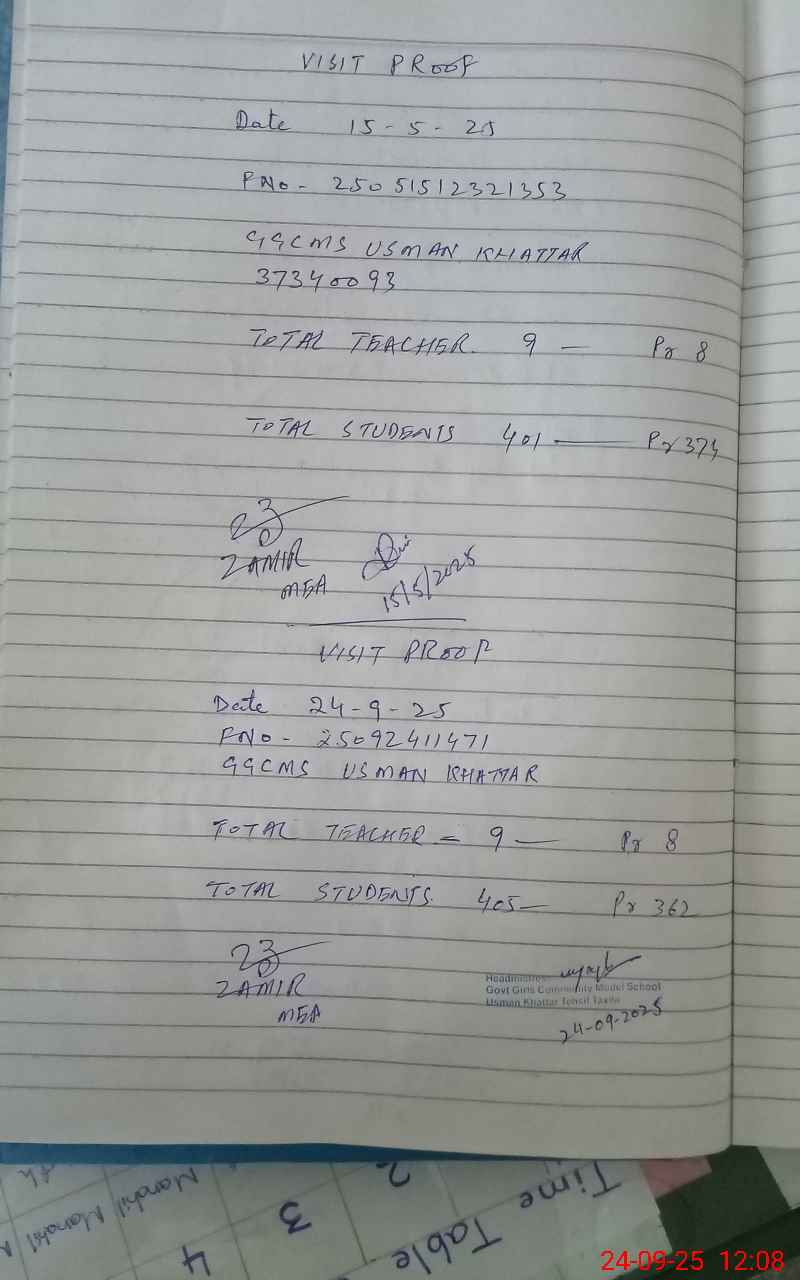 VISIT PROOF
Date 15-5-25
FNo- 25051512321353
GGCMS USMAN KHATTAR
37340093
TOTAL TEACHER. 9 — Pr 8
TOTAL STUDENTS 401 — Pr 374
ZAMIR
MEA
15/5/2025
VISIT PROOF
Date 24-9-25
FNo- 25092411471
GGCMS USMAN KHATTAR
TOTAL TEACHER - 9 — Pr 8
TOTAL STUDENTS. 405 — Pr 362
ZAMIR
MEA
Headmistress
Govt Girls Community Model School
Usman Khattar Tehsil Taxila
24-09-2025
Time Table
2
3
4
Mandhil Mandhil
24-09-25 12:08